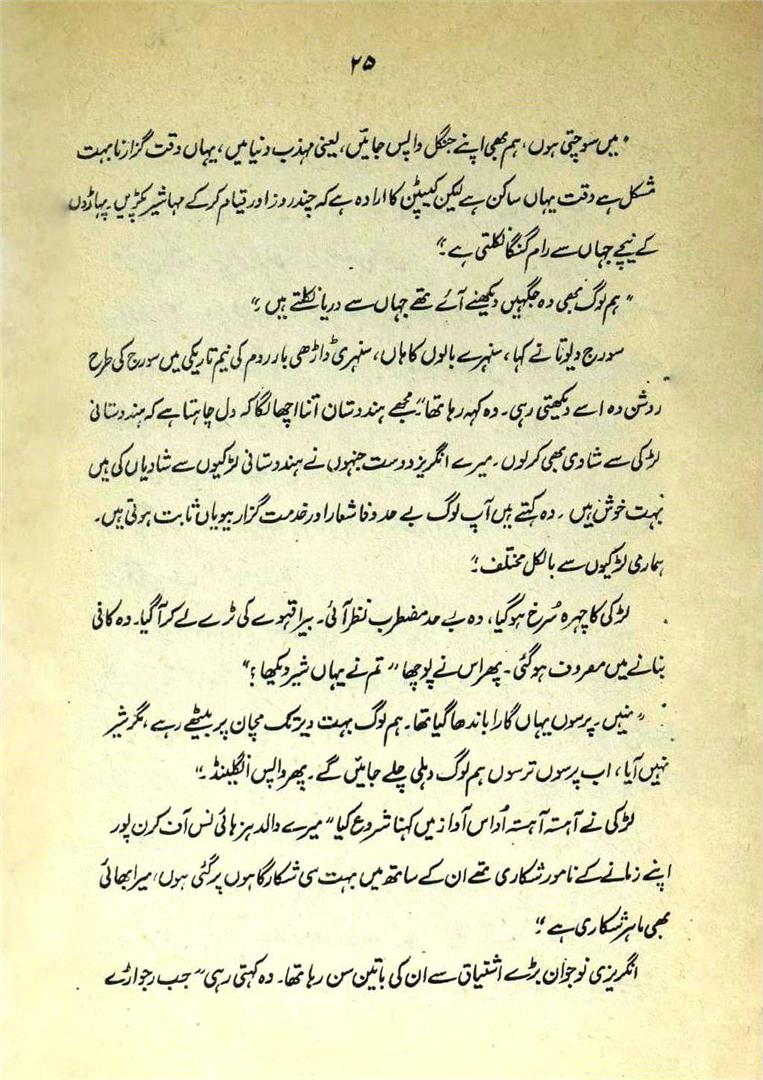 ۲۵
"میں سوچتی ہوں، ہم بھی اپنے جنگل واپس جائیں، یعنی مہذب دنیا میں، یہاں وقت گزارنا بہت
مشکل ہے وقت یہاں ساکن ہے لیکن کیپٹن کا ارادہ ہے کہ چند روز اور قیام کرکے مہاشیر پکڑیں۔ پہاڑوں
کے نیچے جہاں سے رام گنگا نکلتی ہے۔"
"ہم لوگ بھی وہ جگہیں دیکھنے آئے تھے جہاں سے دریا نکلتے ہیں۔"
سورج دیوتا نے کہا، سنہرے بالوں کا ہاں، سنہری داڑھی بار روم کی نیم تاریکی میں سورج کی طرح
روشن وہ اسے دیکھتی رہی۔ وہ کہہ رہا تھا۔ "مجھے ہندستان اتنا اچھا لگا کہ دل چاہتا ہے کہ ہندستانی
لڑکی سے شادی بھی کرلوں۔ میرے انگریز دوست جنہوں نے ہندستانی لڑکیوں سے شادیاں کی ہیں
بہت خوش ہیں۔ وہ کہتے ہیں آپ لوگ بے حد وفا شعار اور خدمت گزار بیویاں ثابت ہوتی ہیں۔
ہماری لڑکیوں سے بالکل مختلف۔"
لڑکی کا چہرہ سُرخ ہو گیا، وہ بے حد مضطرب نظر آئی۔ بیرا قہوے کی ٹرے لے کر آگیا۔ وہ کافی
بنانے میں مصروف ہو گئی۔ پھر اس نے پوچھا "تم نے یہاں شیر دیکھا؟"
"نہیں۔ پرسوں یہاں گارا باندھا گیا تھا۔ ہم لوگ بہت دیر تک مچان پر بیٹھے رہے، مگر شیر
نہیں آیا، اب پرسوں ترسوں ہم لوگ دہلی چلے جائیں گے۔ پھر واپس انگلینڈ۔"
لڑکی نے آہستہ آہستہ اُداس آواز میں کہنا شروع کیا "میرے والد ہز ہائی نس آف کرن پور
اپنے زمانے کے نامور شکاری تھے ان کے ساتھ میں بہت سی شکار گاہوں پر گئی ہوں، میرا بھائی
بھی ماہر شکاری ہے۔"
انگریزی نوجوان بڑے اشتیاق سے ان کی باتیں سن رہا تھا۔ وہ کہتی رہی "جب رجواڑے